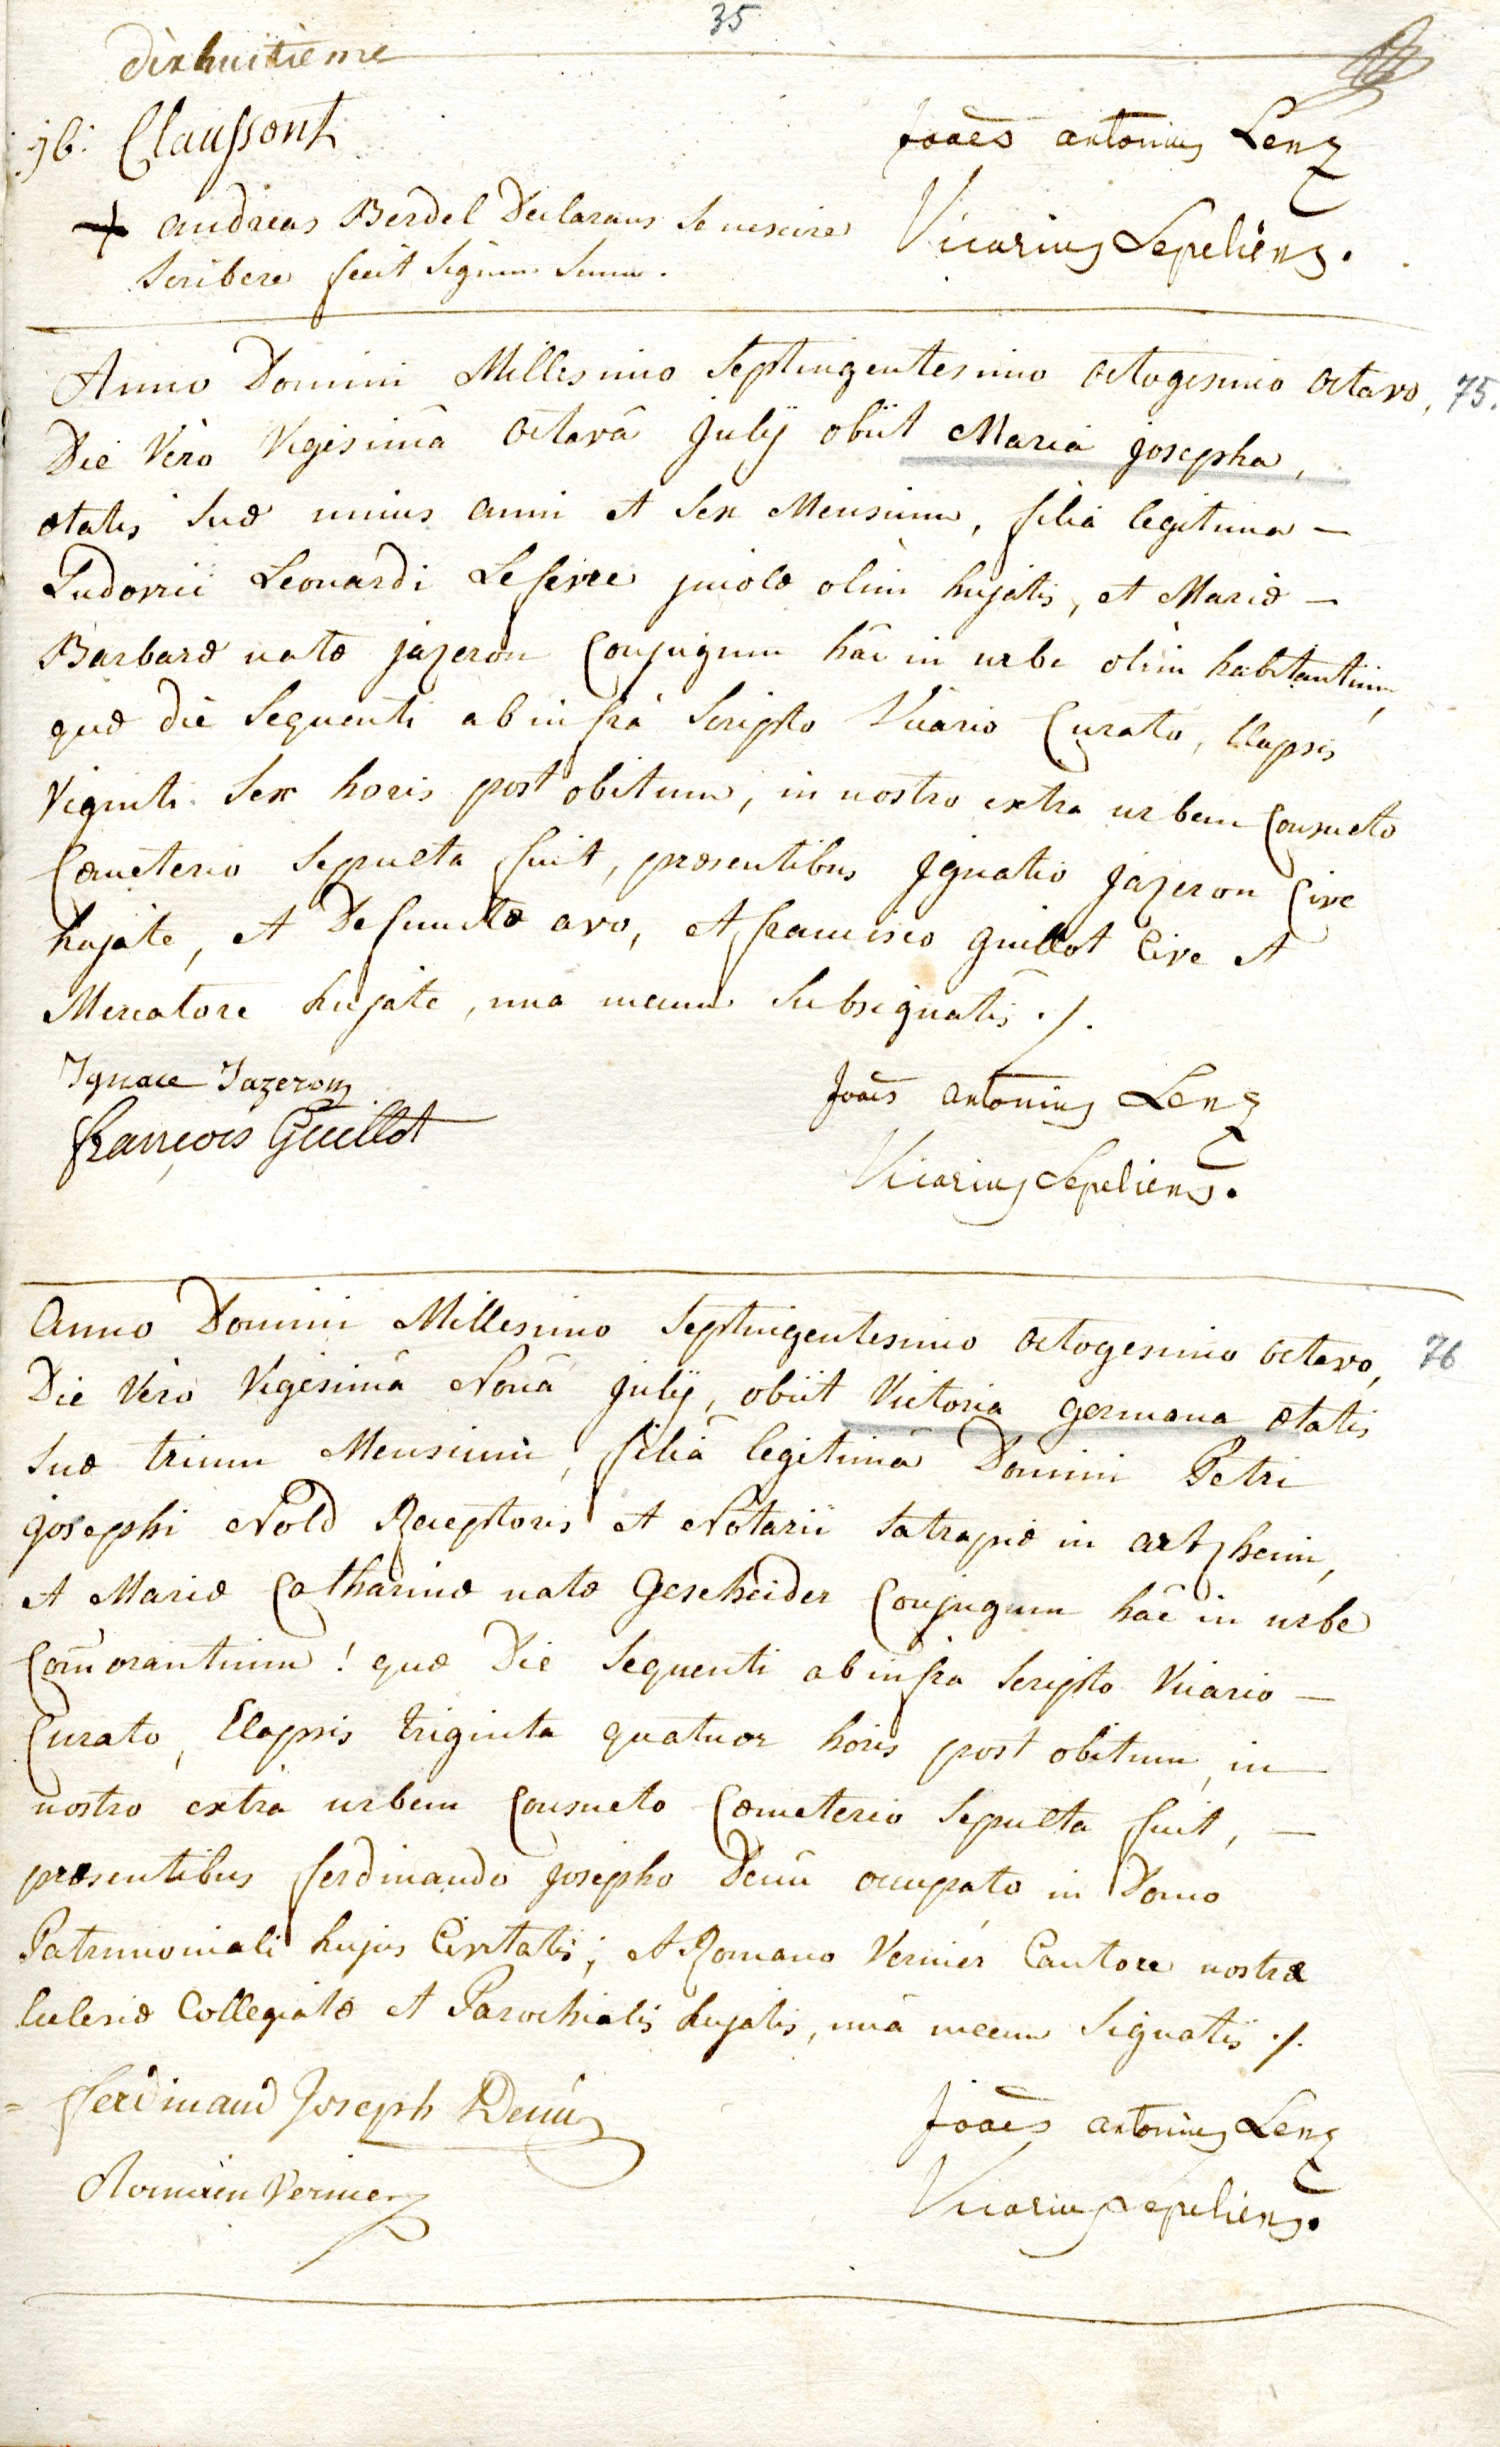 35
dixhuitieme
jb: Claussont
Joaēs antonius Lenz
Vicarius Sepeliens.
+ andreas Berdel Declarans Se nescire
Scribere fecit Signum Suum.
Anno Domini Millesimo Septingentesimo octogesimo octavo, 75.
Die Verò Vigesimâ octavâ julij obiit Maria josepha,
ætatis suæ unius anni et Sex Mensium, filia legitima —
Ludovici Leonardi Lefevre incolæ olim hujatis, et Mariæ —
Barbaræ natæ jazeron Conjugum hâc in urbe olim habitantium,
quæ die Sequenti ab infrà Scripto Vicario Curato, Elapsis
Viginti Sex horis post obitum, in nostro extra urbem Consueto
Cœmeterio Sepulta fuit, præsentibus Ignatio jazeron Cive
hujate, et Defunctæ avo, et francisco guillot Cive et
Mercatore hujate, una mecum Subsignatis ./.
Ignace Jazeron
françois Guillot
Joaēs antonius Lenz
Vicarius Sepeliens.
Anno Domini Millesimo Septingentesimo octogesimo octavo, 76
Die Verò Vigesimâ Nonâ julij, obiit Victoria germana ætatis
suæ trium Mensium, filia legitima Domini Petri
josephi Nold Receptoris et Notarii Satrapiæ in artzheim,
et Mariæ Catharinæ natæ Gescheider Conjugum hâc in urbe
Com̄orantium! quæ Die Sequenti ab infra Scripto Vicario —
Curato, Elapsis triginta quatuor horis post obitum, in —
nostro extrà urbem Consueto Cœmeterio Sepulta fuit, —
præsentibus ferdinando josepho Denū occupato in Domo
Patrimoniali hujus Civitatis; et Romano Vernier Cantore nostræ
Ecclesiæ Collegiatæ et Parochialis hujatis, unâ mecum Signatis ./.
ferdinand Joseph Denū
Romain Vernier
Joaēs antonius Lenz
Vicarius Sepeliens.